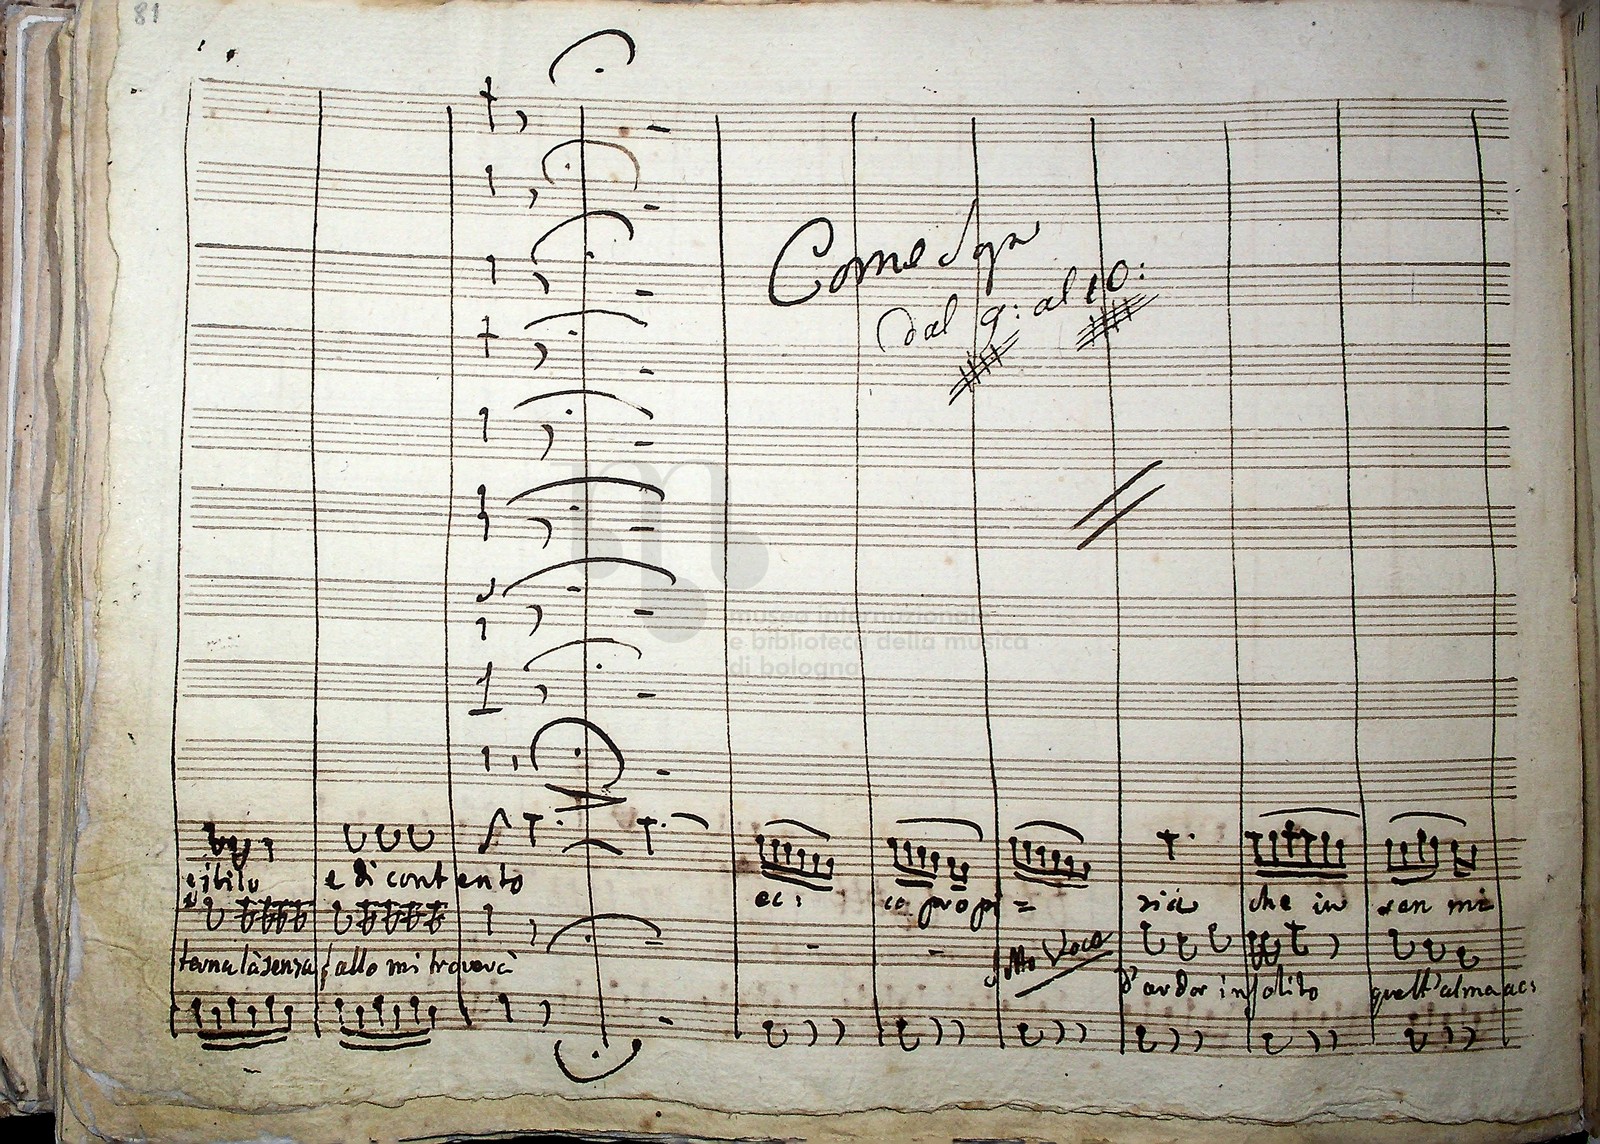 81
Come Sopra
Dal 9: al 10:
museo internazionale
e biblioteca della musica
di bologna
e di contento
ec: co propi = zia che in sen mi
terna là senza fallo mi troverà
sotto Voce
d'ardor insolito quell'alma ac: